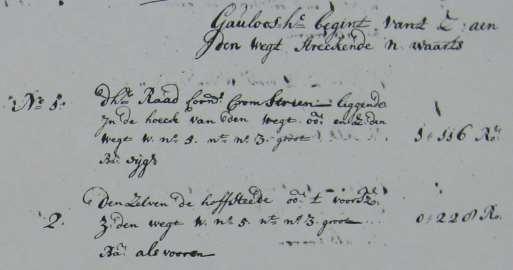 begint van't Z: aen
den wegt streckende n. waarts
N:o 1. Dhr. Raad Corn:s Cromstrien liggende
In de hoeck van den wegt oo: en z: den
wegt w. n:o 1. n:o n:o 3. groot 1=116 Ro
Ba: sijgs
2. Den Zelven de hoffsteede oo: t voors:
Z: den wegt w. n:o 5. n:o n:o 3. groot 0=228 Ro.
Ba: als vooren